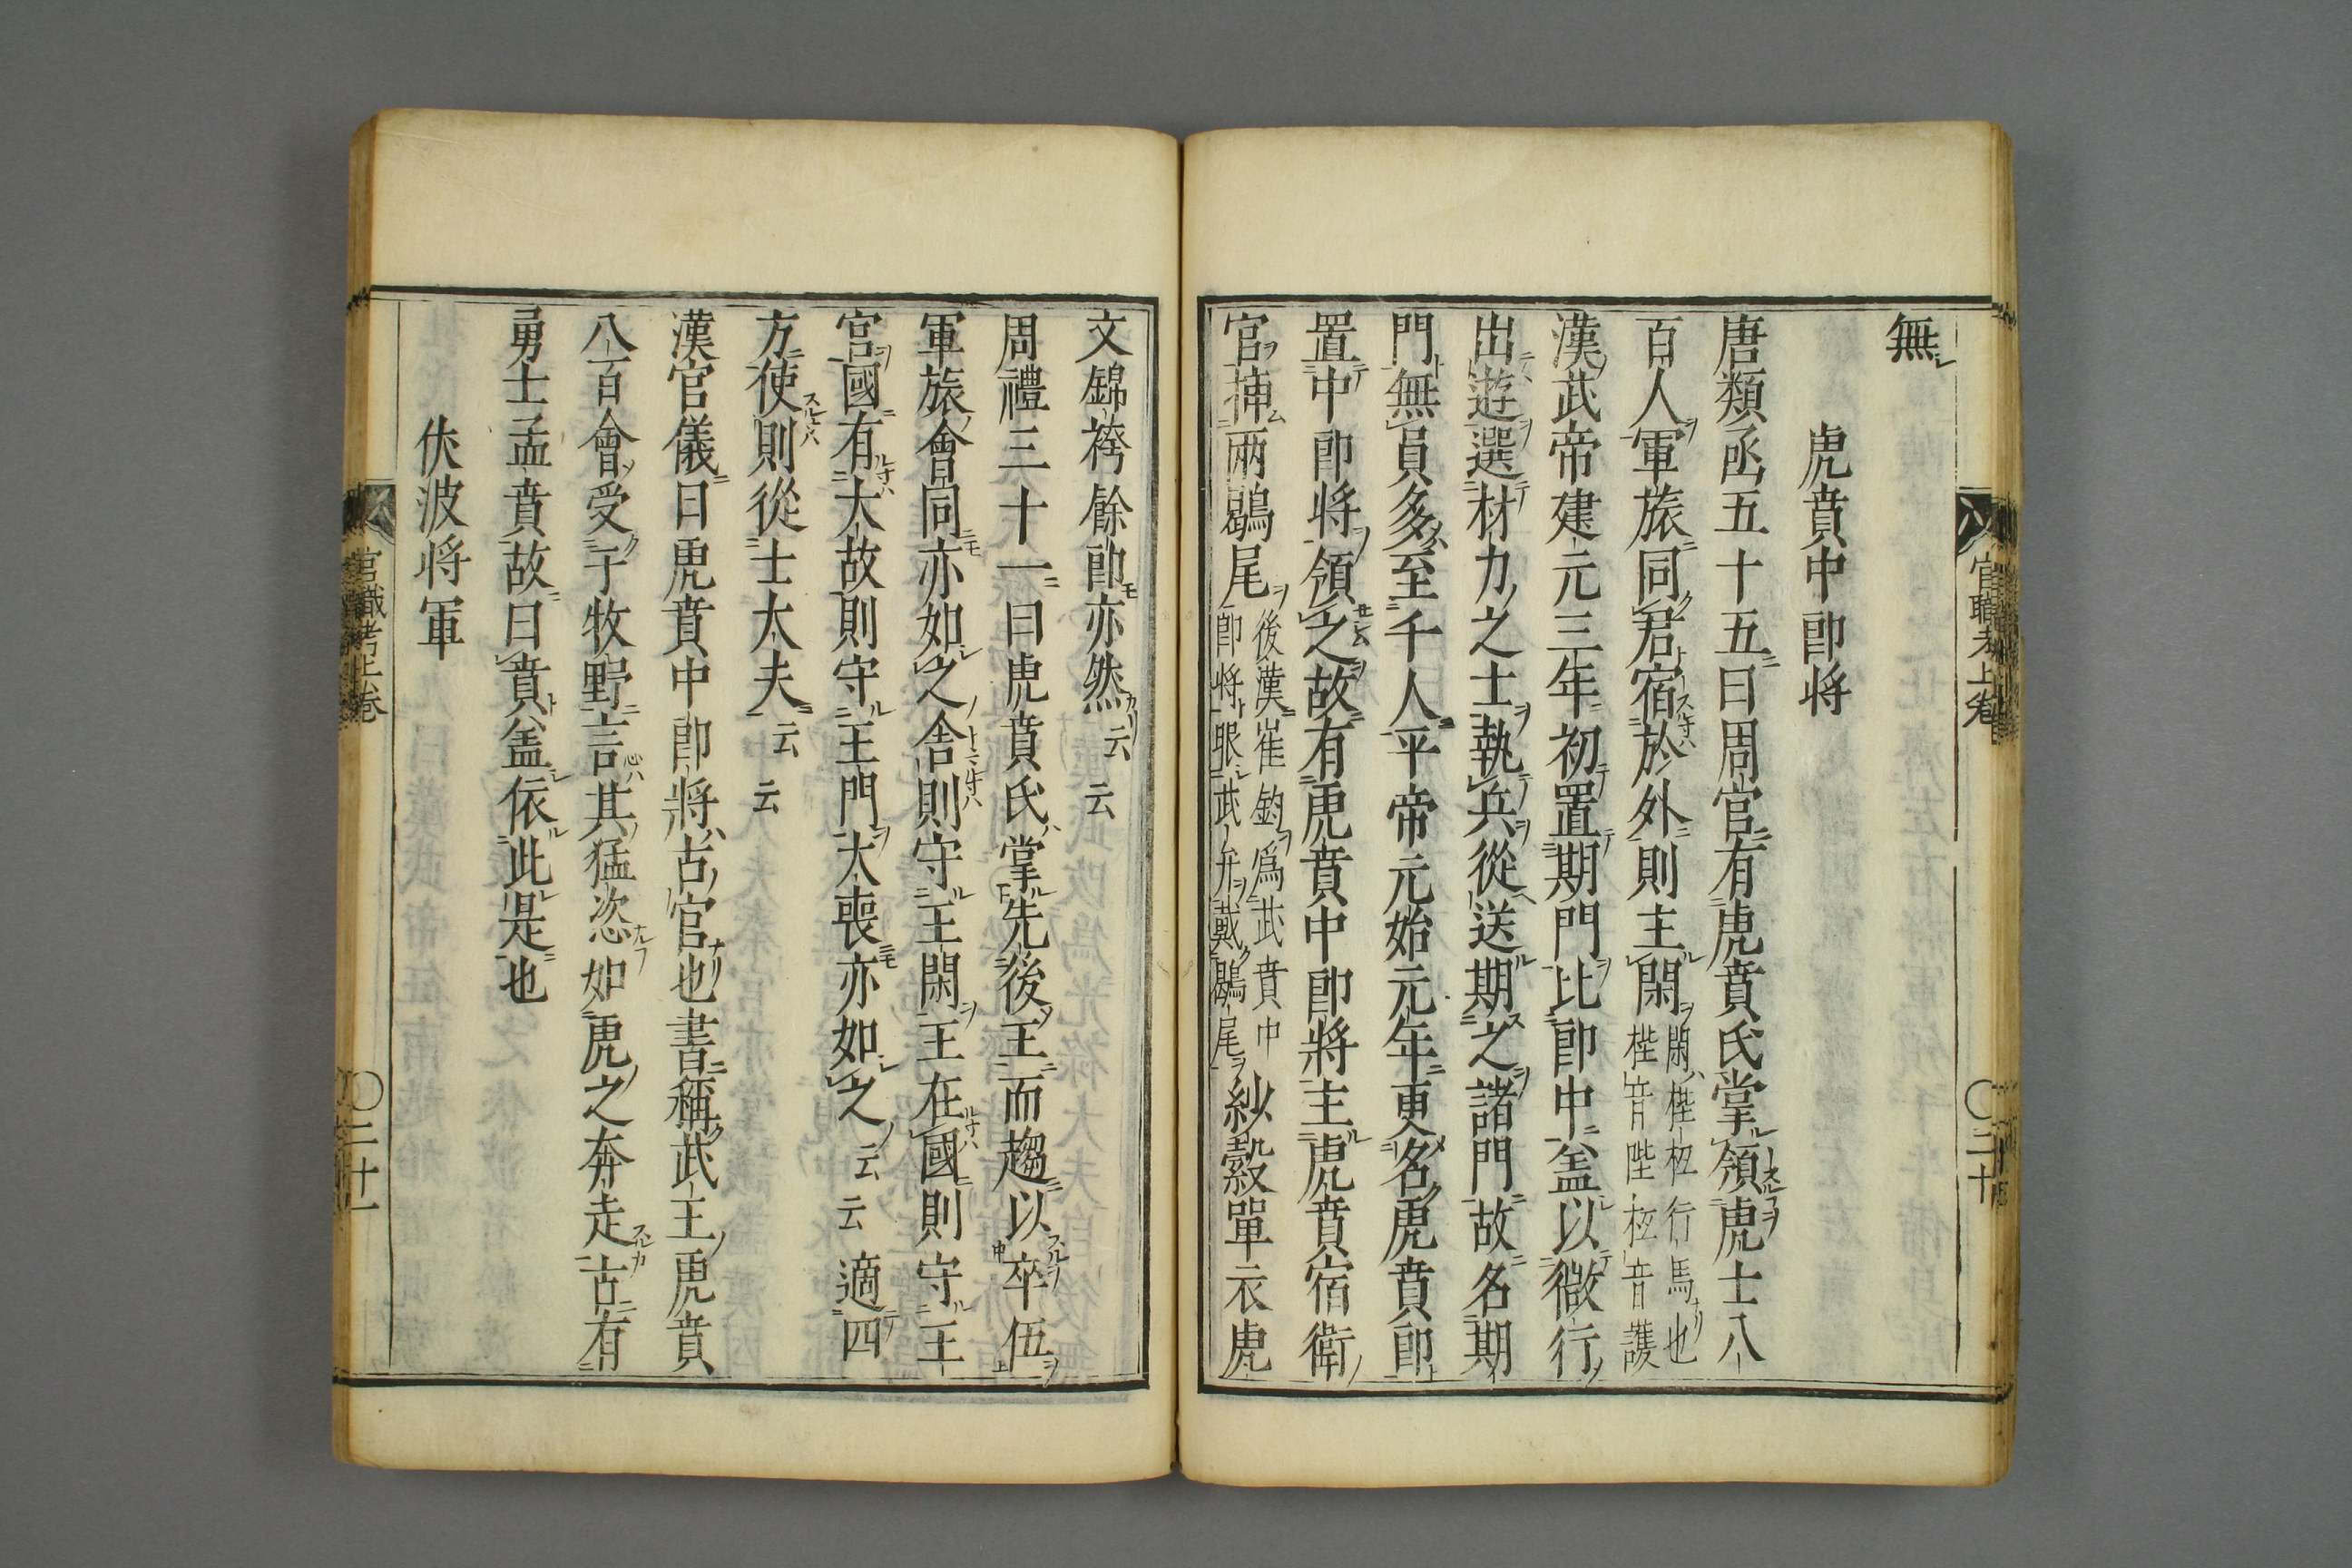 無
虎賁中郎将
唐類函五十五曰周官有虎賁氏掌領虎士八
百人軍旅同君宿於外則主閑 閑梐枑行馬也
梐音陛枑音護
漢武帝建元三年初置期門比郎中盖以微行
出遊選材力之士執兵從送期之諸門故名期
門無員多至千人平帝元始元年更名虎賁郎
置中郎将領之故有虎賁中郎將主虎賁宿衛
官揷兩鶡尾 後漢崔鈞為武賁中
郎将服武弁戴鶡尾 紗縠單衣虎
官職考上巻 〇二十
文錦袴餘郎亦然云云
周禮三十一曰虎賁氏掌先後王而趨以卒伍
軍旅會同亦如之舎則守王閑王在國則守王
宮國有大故則守王門大喪亦如之云云適四
方使則從士大夫云云
漢官儀曰虎賁中郎將古官也書稱武王虎賁
八百會受于牧野言其猛恣如虎之奔走古有
勇士孟賁故曰賁盖依此是也
伏波将軍
官職考上巻 〇二十一